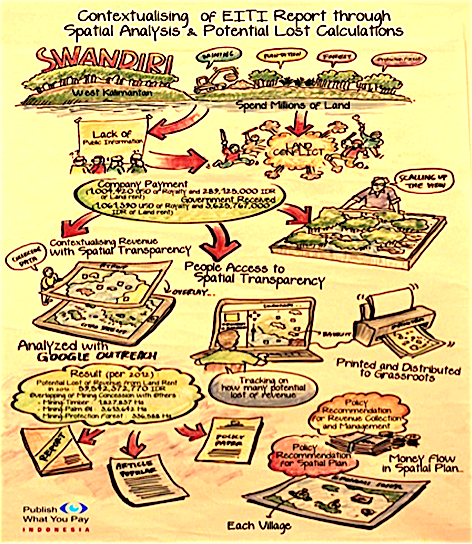 Contextualising of EITI Report through
Spatial Analysis & Potential Lost Calculations
SWANDIRI
West Kalimantan
MINING
PLANTATION
FOREST
Protection Forest
Spend Millions of Land
Lack of
Public Information
LAND
CONFLICT
SCALLING UP
THE VIEW
Company Payment
(1,009,420 USD of Royalty and 289,125,000 IDR
of Land rent)
Government Received
(1,061,390 USD of Royalty and 3,625,767,000
IDR of Land rent)
Contextualising Revenue
with Spatial Transparency
DATA
OVERLAY...
People Access to
Spatial Transparency
Analyzed with
GOOGLE OUTREACH
Printed and Distributed
to Grassroots
Result (per 2012)
Potential Lost of Revenue from Land Rent
Overlapping of Mining Concession with Others
Mining-Timber : 1.827.837 Ha
Mining-Palm Oil : 3.613.642 Ha
Mining-Protection Forest : 336.588 Ha
Tracking on
how many potential
lost of revenue
Policy
Recommendation
for Revenue Collection
and Management
Policy
Recommendation
for Spatial Plan
Money flow
in Spatial Plan...
REPORT
ARTICLE
POPULAR
POLICY
PAPER
Each Village
Publish
What You Pay
INDONESIA